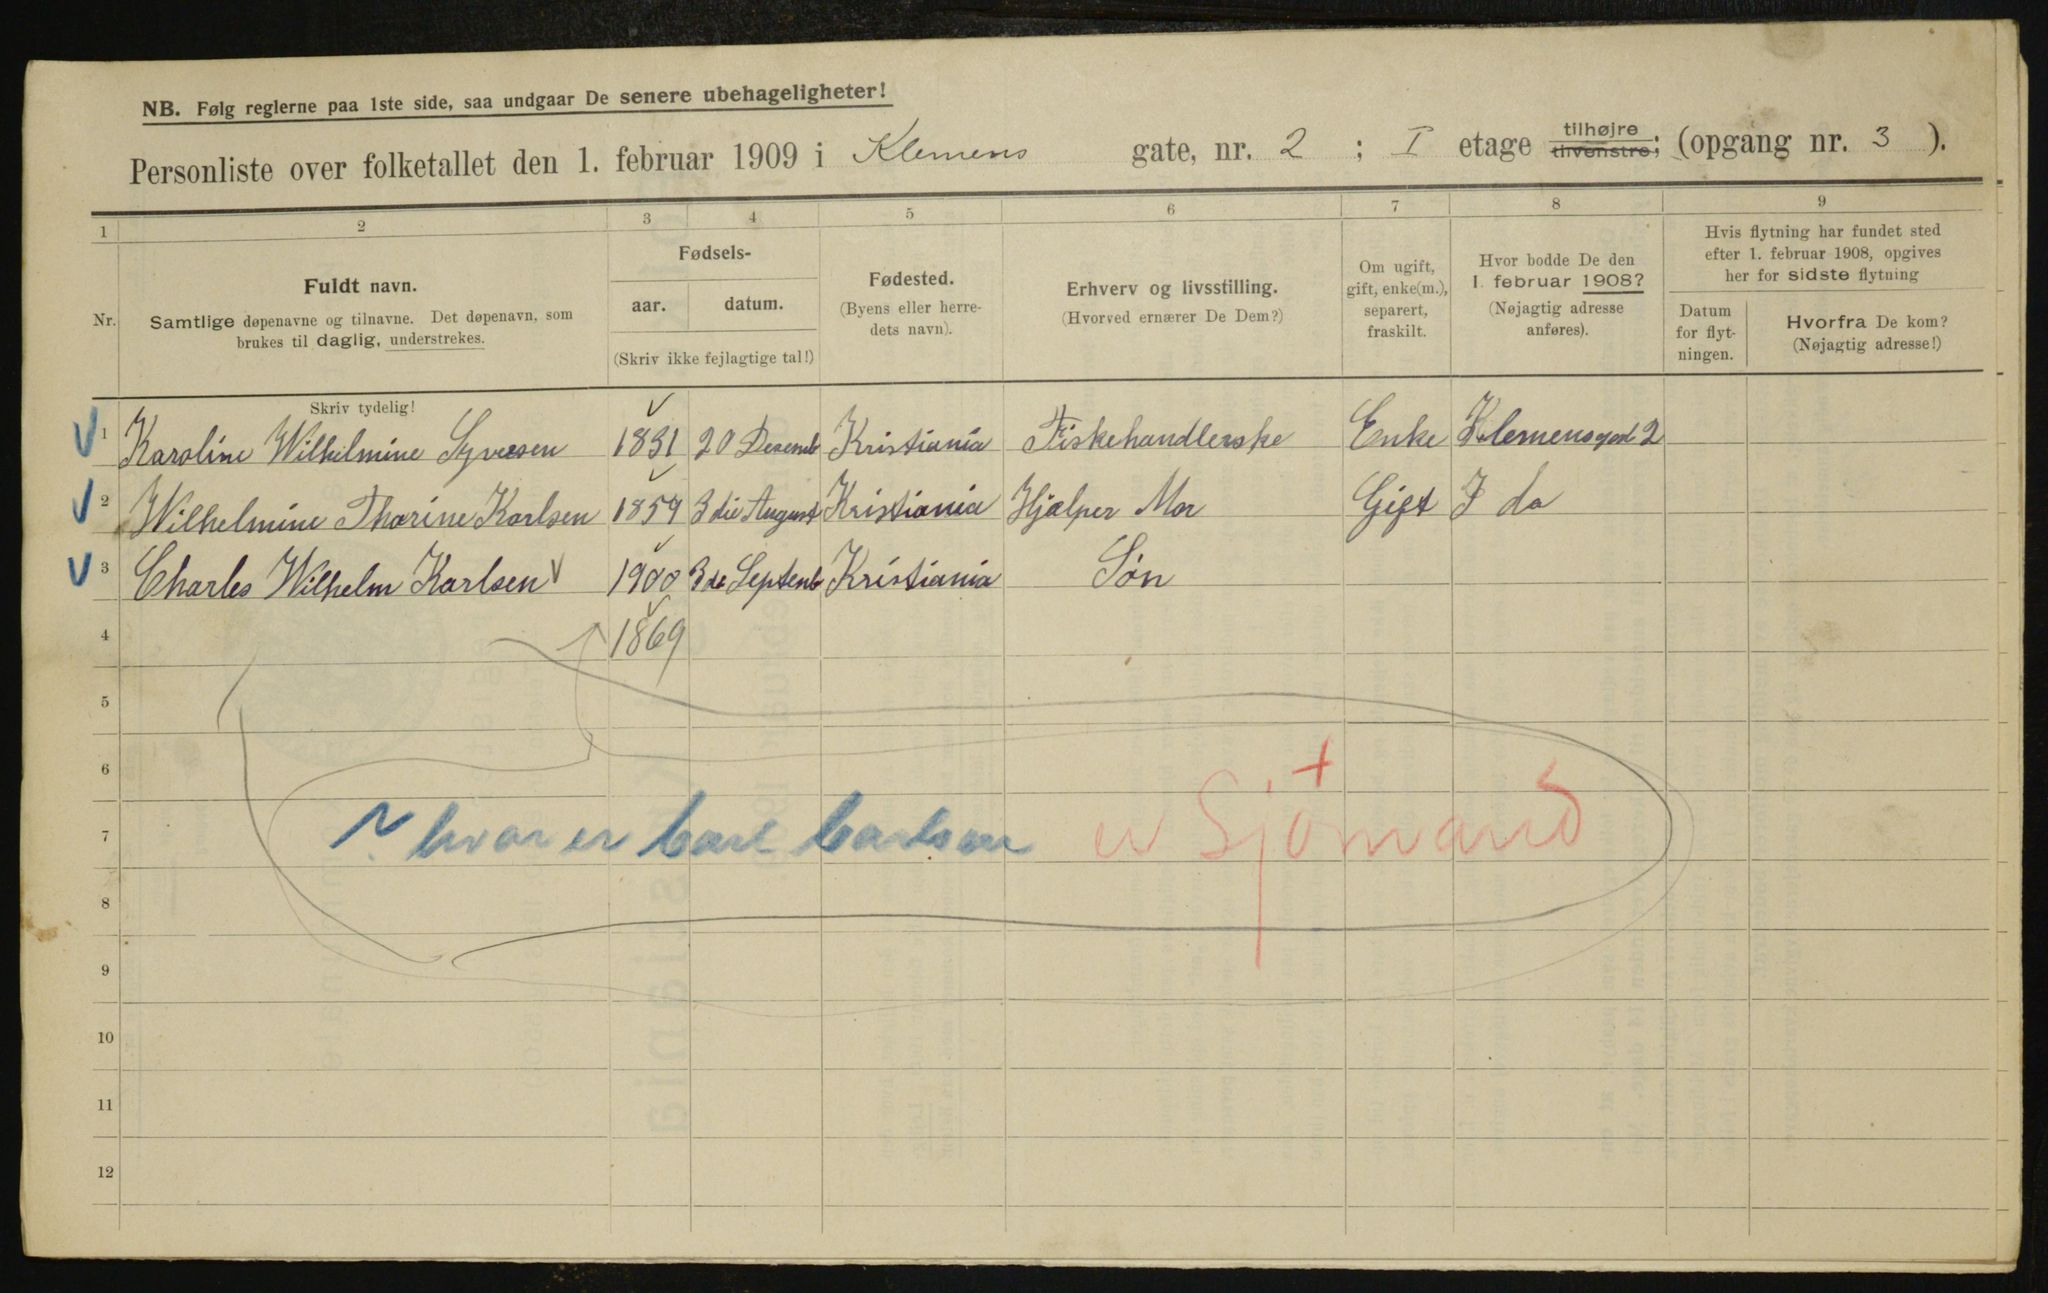 NB. Følg reglerne paa 1ste side, saa undgaar De senere ubehageligheter!
Personliste over folketallet den 1. februar 1909 i Klemens gate, nr. 2 ; I etage tilhøjre tilvenstre; (opgang nr. 3 ).
1 2 3 4 5 6 7 8 9
Nr.
Fuldt navn.
Samtlige døpenavne og tilnavne. Det døpenavn, som
brukes til daglig, understrekes.
Fødsels-
aar. datum.
(Skriv ikke fejlagtige tal!)
Fødested.
(Byens eller herre-
dets navn).
Erhverv og livsstilling.
(Hvorved ernærer De Dem?)
Om ugift,
gift, enke(m.),
separert,
fraskilt.
Hvor bodde De den
1. februar 1908?
(Nøjagtig adresse
anføres).
Hvis flytning har fundet sted
efter 1. februar 1908, opgives
her for sidste flytning
Datum
for flyt-
ningen.
Hvorfra De kom?
(Nøjagtig adresse!)
Skriv tydelig!
1 Karoline Wilhelmine Syversen 1831 20 Desemb Kristiania Fiskehandlerske Enke Klemensgad 2
2 Wilhelmine Thorine Karlsen 1859 3die August Kristiania Hjælper Mor Gift I do
3 Charles Wilhelm Karlsen 1900 3de Septemb Kristiania Søn
4 1869
5
6
7 hvor er Carl Carlsen er Sjömand
8
9
10
11
12